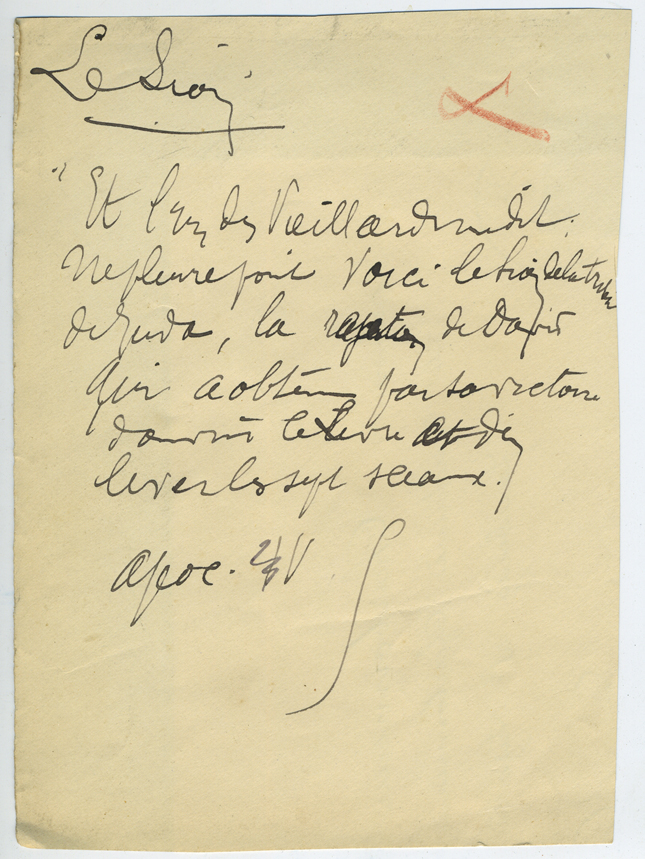 Le Lion
" Et l'un des Vieillards me dit :
Ne pleure point Voici le Lion de la tribu
de Juda, la de David
qui a obtenu par sa victoire
d'ouvrir le Livre et d'en
lever les sept sceaux.
Apoc. V